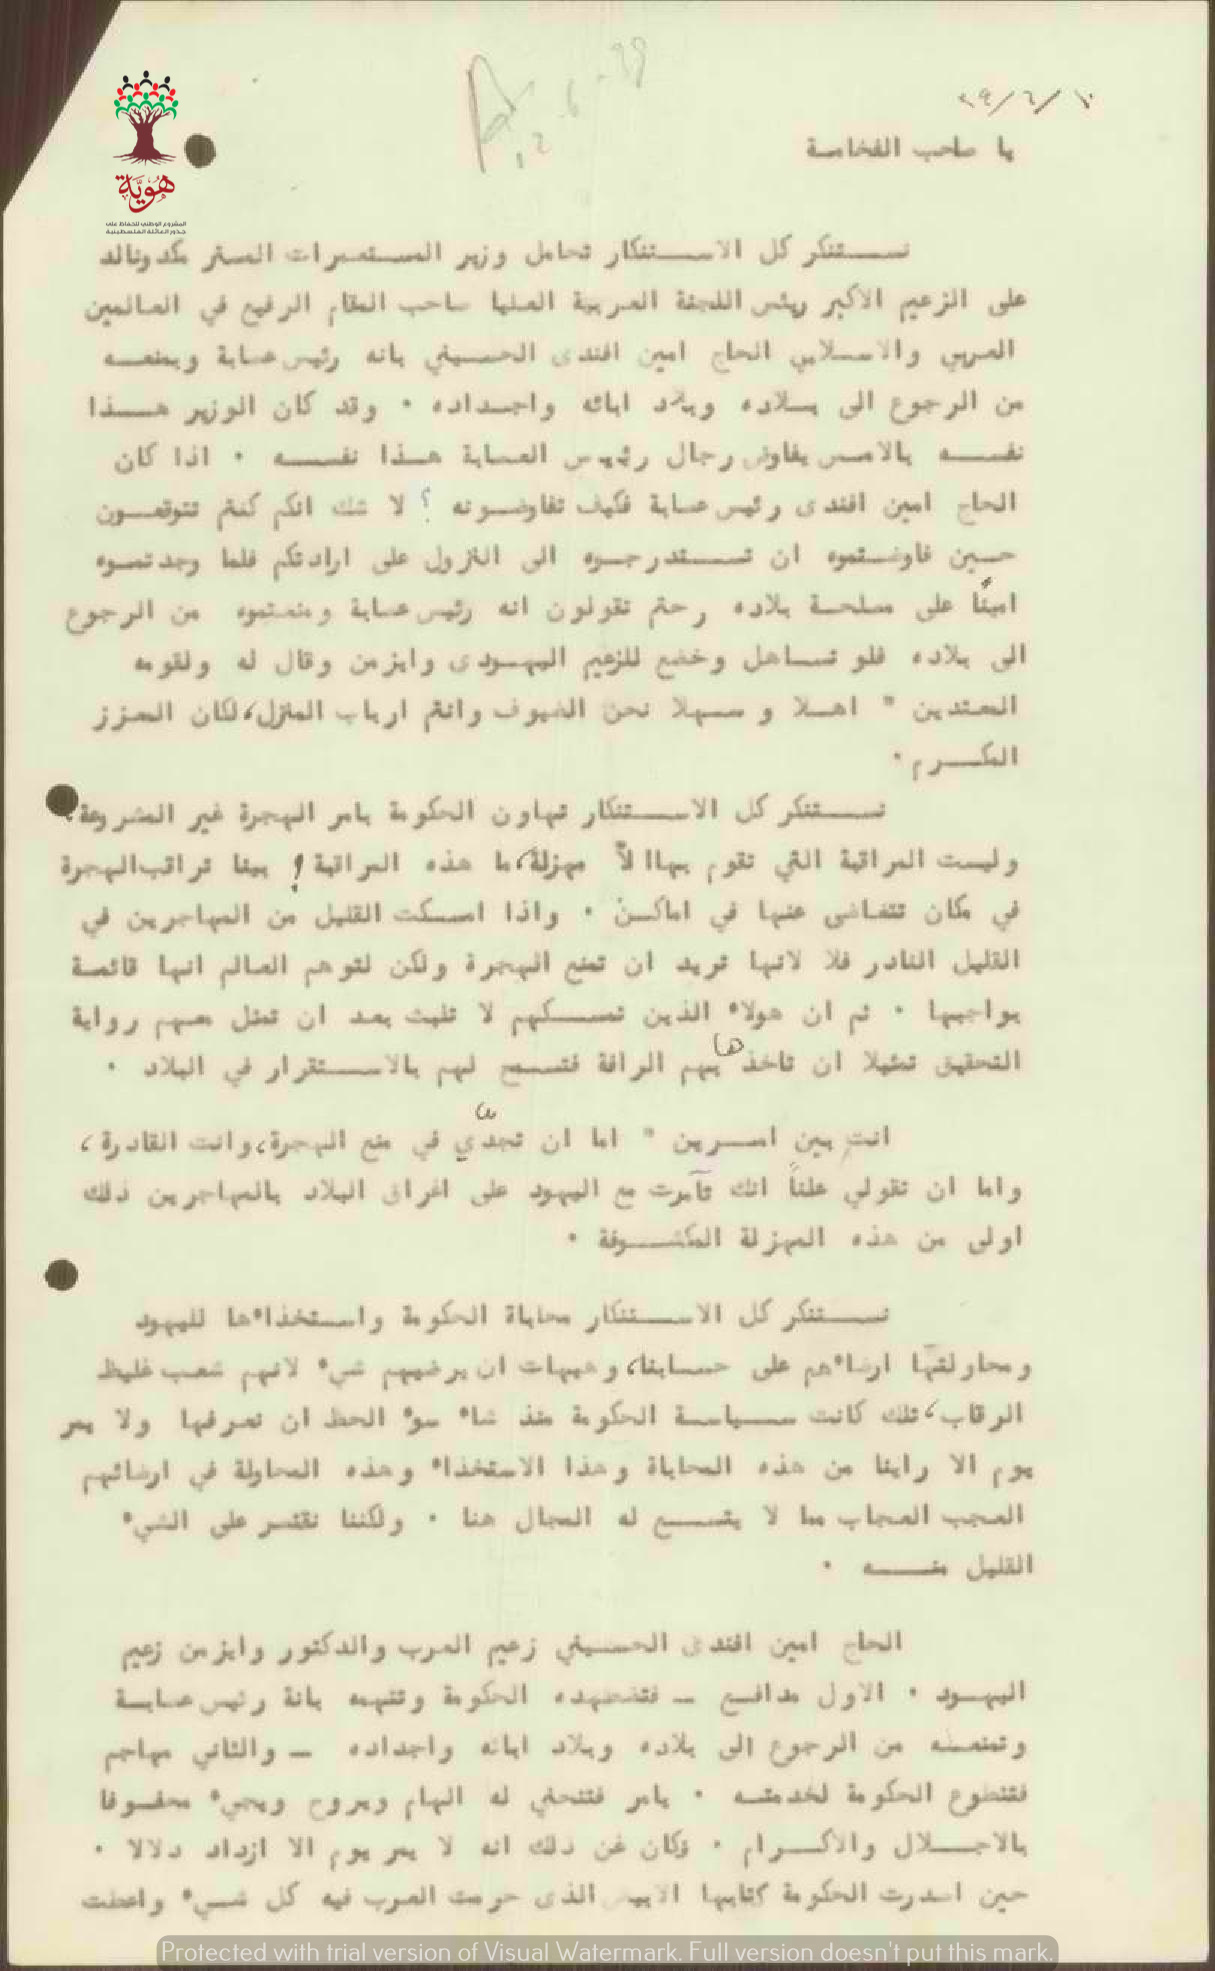 ١٠/٦/٣٩
12-6-39
يا صاحب الفخامة
هُوِيَّة
المشروع الوطني للحفاظ على
جذور العائلة الفلسطينية
نستنكر كل الاستنكار تحامل وزير المستعمرات المستر مكدونالد
على الزعيم الاكبر رئيس اللجنة العربية العليا صاحب المقام الرفيع في العالمين
العربي والاسلامي الحاج امين افندى الحسيني بانه رئيس عصابة ويمنعه
من الرجوع الى بلاده وبلاد ابائه واجداده ٠ وقد كان الوزير هذا
نفسه بالامس يفاوض رجال رئيس العصابة هذا نفسه ٠ اذا كان
الحاج امين افندى رئيس عصابة فكيف تفاوضونه ؟ لا شك انكم كنتم تتوقعون
حين فاوضتموه ان تستدرجوه الى النزول على ارادتكم فلما وجدتموه
امينًا على مصلحة بلاده رحتم تقولون انه رئيس عصابة ومنعتموه من الرجوع
الى بلاده فلو تساهل وخضع للزعيم اليهودى وايزمن وقال له ولقومه
المعتدين " اهلا و سهلا نحن الضيوف وانتم ارباب المنزل، لكان المعزز
المكرم ٠
نستنكر كل الاستنكار تهاون الحكومة بامر الهجرة غير المشروعة.
وليست المراقبة التي تقوم بها الاّ مهزلة، ما هذه المراقبة ! بينا تراقب الهجرة
في مكان تتغاضى عنها في اماكن ٠ واذا امسكت القليل من المهاجرين في
القليل النادر فلا لانها تريد ان تمنع الهجرة ولكن لتوهم العالم انها قائمة
بواجبها ٠ ثم ان هولاء الذين تمسكهم لا تلبث بعد ان تمثل معهم رواية
التحقيق تمثيلا ان تاخذها بهم الرافة فتسمح لهم بالاستقرار في البلاد ٠
انتِ بين امرين " اما ان تجدّي في منع الهجرة، وانت القادرة،
واما ان تقولي علناً انك تآمرت مع اليهود على اغراق البلاد بالمهاجرين ذلك
اولى من هذه المهزلة المكشوفة ٠
نستنكر كل الاستنكار محاباة الحكومة واستخذاءها لليهود
ومحاولتها ارضاءهم على حسابنا، وهيهات ان يرضيهم شيء لانهم شعب غليظ
الرقاب، تلك كانت سياسة الحكومة منذ شاء سوء الحظ ان نعرفها ولا يمر
يوم الا راينا من هذه المحاباة وهذا الاستخذاء وهذه المحاولة في ارضائهم
العجب العجاب مما لا يتسع له المجال هنا ٠ ولكننا نقتصر على الشيء
القليل منه ٠
الحاج امين افندى الحسيني زعيم العرب والدكتور وايزمن زعيم
اليهود ٠ الاول مدافع — فتضطهده الحكومة وتتهمه بانة رئيس عصابة
وتمنعه من الرجوع الى بلاده وبلاد ابائه واجداده — والثاني مهاجم
فتتطوع الحكومة لخدمته ٠ يامر فتنحني له الهام ويروح ويجيء محفوفا
بالاجلال والاكرام ٠ فكان من ذلك انه لا يمر يوم الا ازداد دلالا ٠
حين اصدرت الحكومة كتابها الابيض الذى حرمت العرب فيه كل شيء واعطت
Protected with trial version of Visual Watermark. Full version doesn't put this mark.